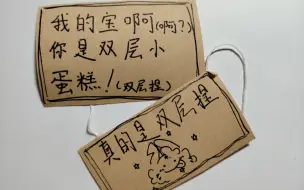 我的宝啊(啊?)
你是双层小
蛋糕!(双层捏)
真的是双层捏